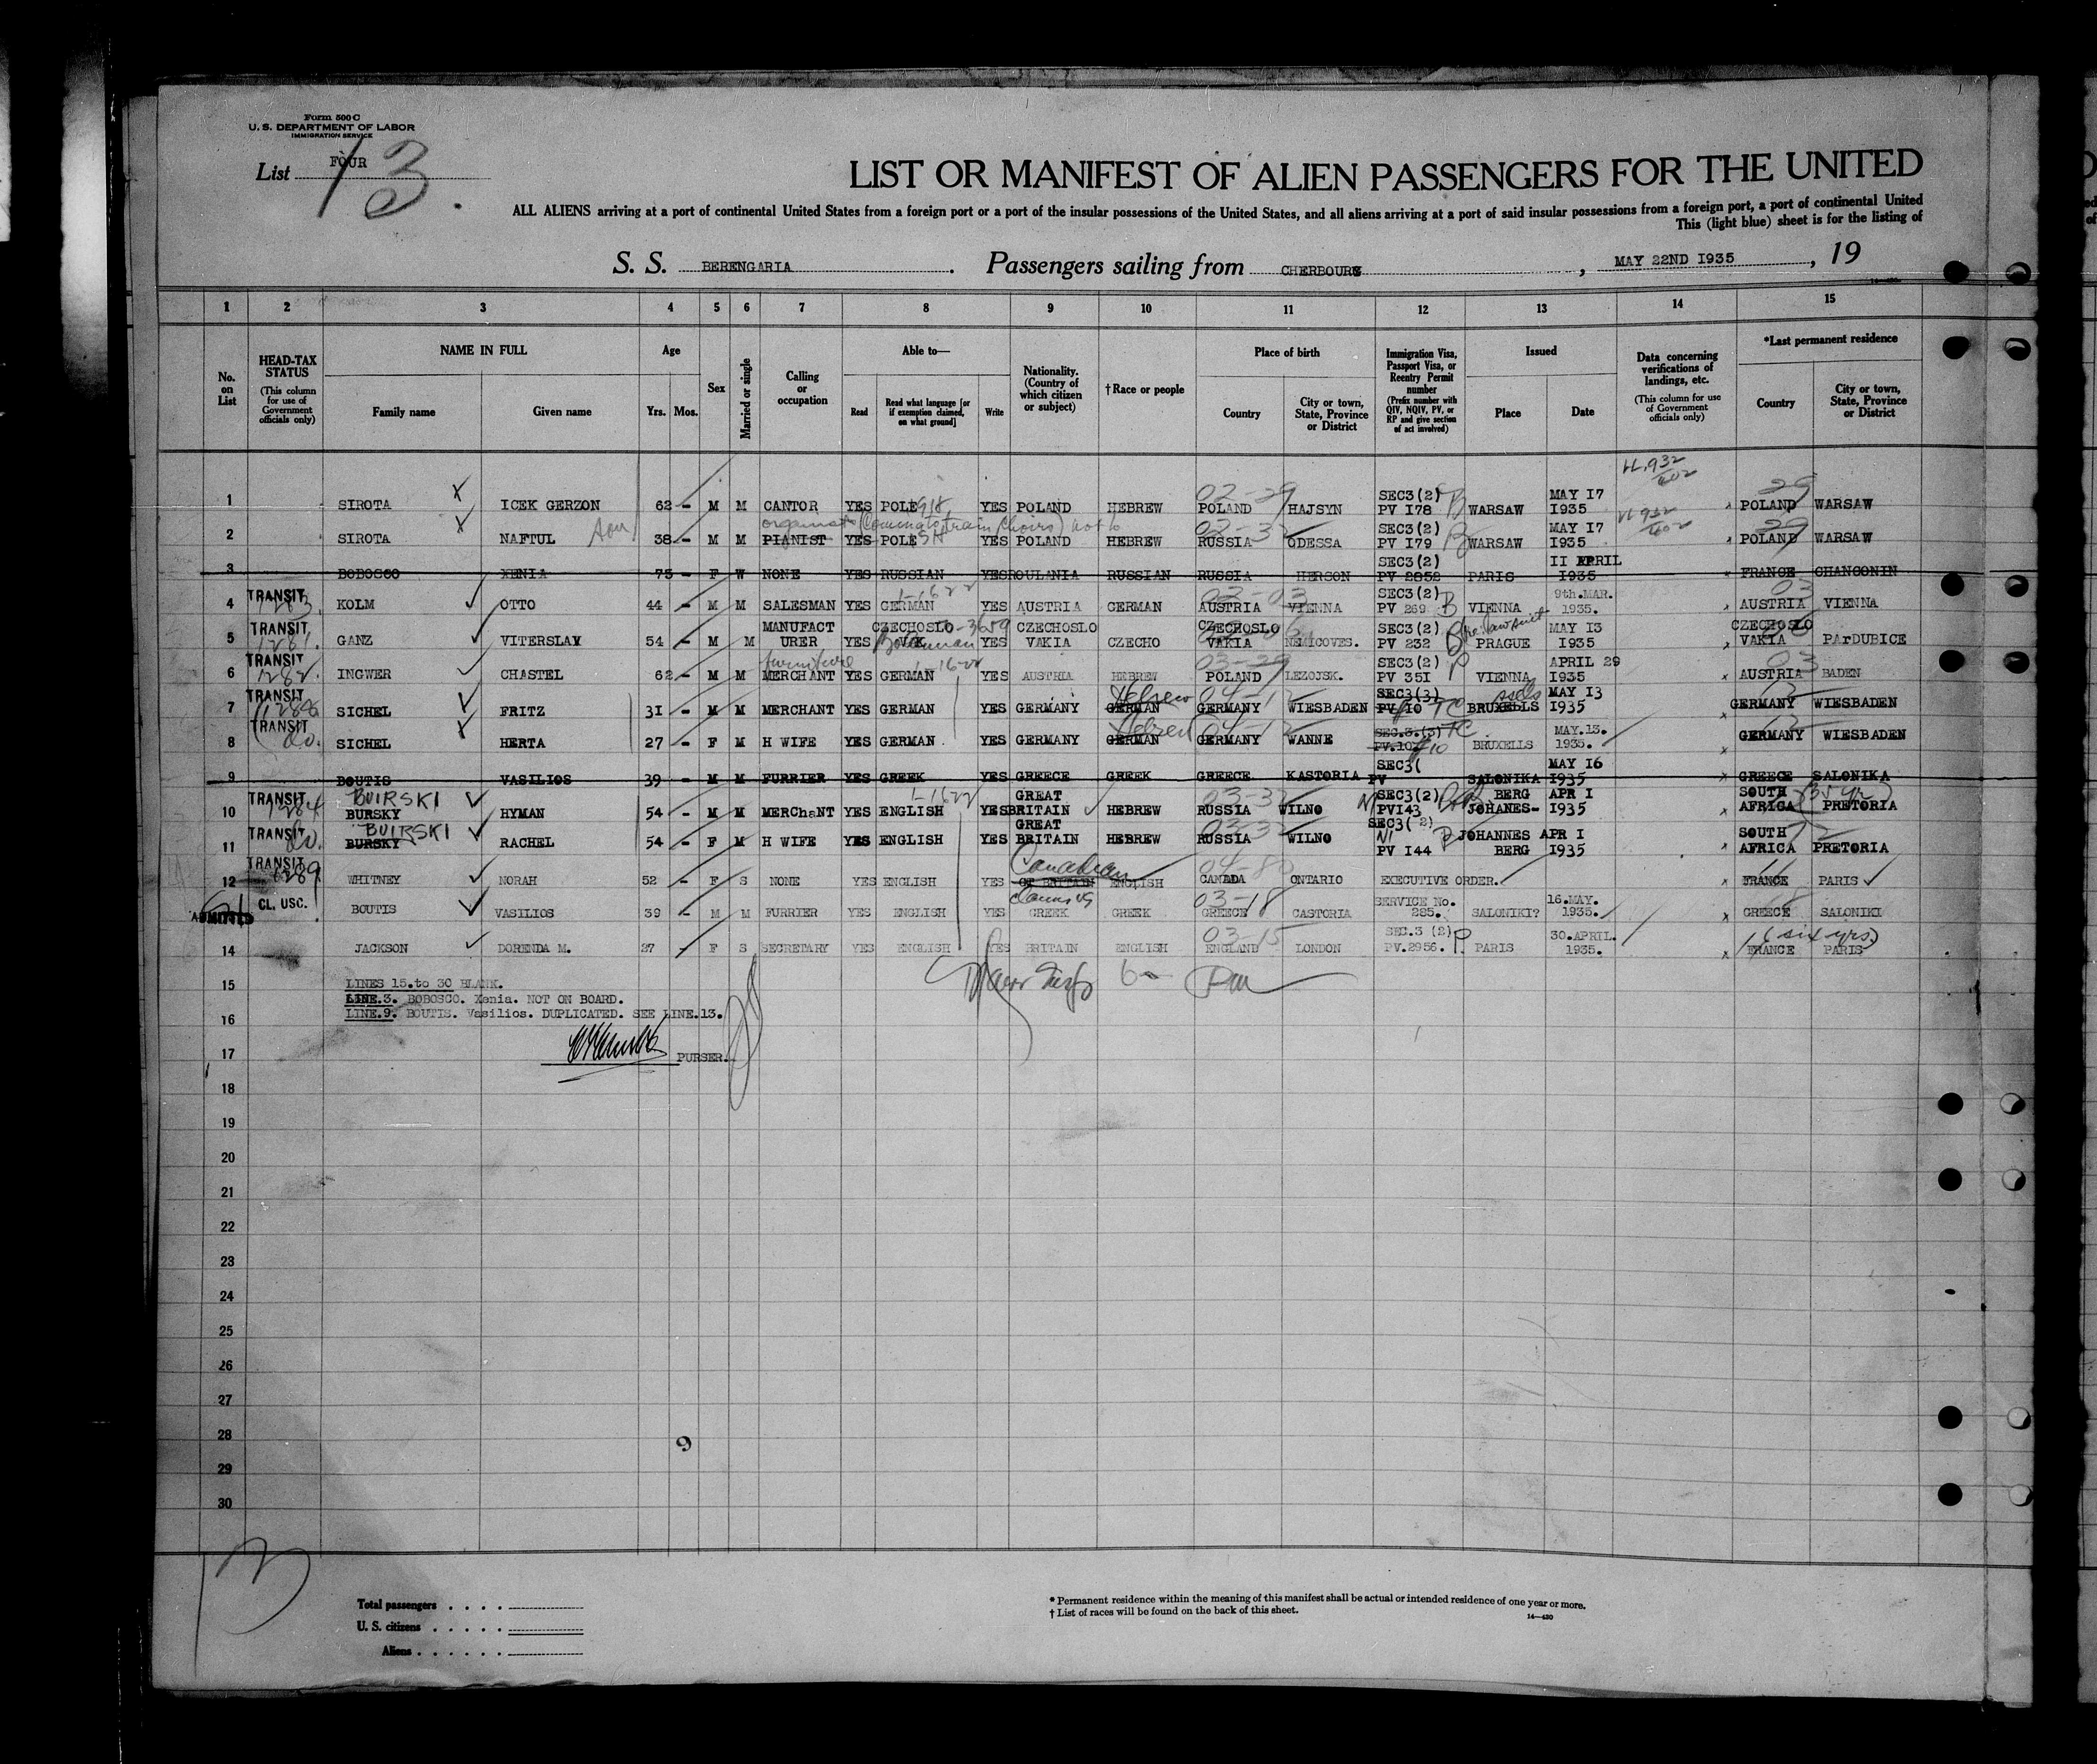 Form 500 C
U. S. DEPARTMENT OF LABOR
IMMIGRATION SERVICE
List FOUR
13.
LIST OR MANIFEST OF ALIEN PASSENGERS FOR THE UNITED
ALL ALIENS arriving at a port of continental United States from a foreign port or a port of the insular possessions of the United States, and all aliens arriving at a port of said insular possessions from a foreign port, a port of continental United
This (light blue) sheet is for the listing of
S. S. BERENGARIA. Passengers sailing from CHERBOURG, MAY 22ND 1935, 19
1 2 3 4 5 6 7 8 9 10 11 12 13 14 15
No. on List
HEAD-TAX STATUS (This column for use of Government officials only)
NAME IN FULL Family name Given name
Age Yrs. Mos.
Sex
Married or single
Calling or occupation
Able to— Read Read what language [or if exemption claimed, on what ground] Write
Nationality. (Country of which citizen or subject)
† Race or people
Place of birth Country City or town, State, Province or District
Immigration Visa, Passport Visa, or Reentry Permit number (Prefix number with QIV, NQIV, PV, or RP and give section of act involved)
Issued Place Date
Data concerning verifications of landings, etc. (This column for use of Government officials only)
*Last permanent residence Country City or town, State, Province or District
1 SIROTA ICEK GERZON 62 - M M CANTOR YES POLE YES POLAND HEBREW 02-29 POLAND HAJSYN SEC3(2) PV I78 B WARSAW MAY I7 I935 29 POLAND WARSAW
2 SIROTA NAFTUL son 38 - M M PIANIST YES POLE YES POLAND HEBREW RUSSIA ODESSA SEC3(2) PV I79 B WARSAW MAY I7 I935 29 POLAND WARSAW
3 BOBOSCO XENIA 75 - F W NONE YES RUSSIAN YES ROULANIA RUSSIAN RUSSIA HERSON SEC3(2) PV 2852 PARIS II APRIL I935 FRANCE CHANCONIN
4 TRANSIT KOLM OTTO 44 - M M SALESMAN YES GERMAN YES AUSTRIA GERMAN AUSTRIA VIENNA SEC3(2) PV 269 B VIENNA 9th.MAR. 1935. 03 AUSTRIA VIENNA
5 TRANSIT GANZ VITERSLAV 54 - M M MANUFACTURER YES CZECHOSLOVAK Bohemian YES CZECHOSLOVAKIA CZECHO CZECHOSLOVAKIA NEMICOVES. SEC3(2) PV 232 B PRAGUE MAY I3 I935 CZECHOSLOVAKIA PArDUBICE
6 TRANSIT INGWER CHASTEL 62 - M M furniture MERCHANT YES GERMAN YES AUSTRIA HEBREW 03-29 POLAND LEZOJSK. SEC3(2) PV 35I P VIENNA APRIL 29 I935 03 AUSTRIA BADEN
7 TRANSIT SICHEL FRITZ 3I - M M MERCHANT YES GERMAN YES GERMANY GERMAN Hebrew 04-12 GERMANY WIESBADEN SEC3(3) PV I0 TC BRUXELLS MAY I3 I935 GERMANY WIESBADEN
8 TRANSIT do. SICHEL HERTA 27 - F M H WIFE YES GERMAN YES GERMANY GERMAN Hebrew 04-12 GERMANY WANNE SEC.3.(3) TC PV.10 BRUXELLS MAY.13. 1935. GERMANY WIESBADEN
9 BOUTIS VASILIOS 39 - M M FURRIER YES GREEK YES GREECE GREEK GREECE KASTORIA SEC3( PV SALONIKA MAY I6 I935 GREECE SALONIKA
10 TRANSIT 1284 BUIRSKI BURSKY HYMAN 54 - M M MERChaNT YES ENGLISH YES GREAT BRITAIN HEBREW RUSSIA WILNO SEC3(2) PVI43 JOHANES-BERG APR I I935 SOUTH AFRICA (35 yr) PRETORIA
11 TRANSIT do. BUIRSKI BURSKY RACHEL 54 - F M H WIFE YES ENGLISH YES GREAT BRITAIN HEBREW RUSSIA WILNO SEC3(2) PV I44 JOHANNESBERG APR I I935 SOUTH AFRICA PRETORIA
12 TRANSIT 1289 WHITNEY NORAH 52 - F S NONE YES ENGLISH YES GT BRITAIN Canadian ENGLISH CANADA ONTARIO EXECUTIVE ORDER. FRANCE PARIS
ADMITTED CL. USC. BOUTIS VASILIOS 39 - M M FURRIER YES ENGLISH YES GREEK GREEK 03-18 GREECE CASTORIA SERVICE No. 285. SALONIKI? 16.MAY. 1935. GREECE SALONIKI
14 JACKSON DORENDA M. 27 - F S SECRETARY YES ENGLISH YES BRITAIN ENGLISH 03-15 ENGLAND LONDON SEC.3 (2) PV.2956. P PARIS 30.APRIL. 1935. (six yrs) FRANCE PARIS
15 LINES 15.to 30 BLANK.
LINE.3. BOBOSCO. Xenia. NOT ON BOARD.
16 LINE.9. BOUTIS. Vasilios. DUPLICATED. SEE LINE.13.
17 PURSER.
18
19
20
21
22
23
24
25
26
27
28 9
29
30
13
Total passengers
U. S. citizens
Aliens
* Permanent residence within the meaning of this manifest shall be actual or intended residence of one year or more.
† List of races will be found on the back of this sheet.
14—430